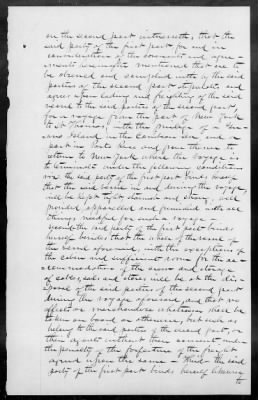 on the second part witnesseth, that the
said party of the first part for and in
consideration of the covenants and agree-
ments hereinafter mentioned that are to
be observed and complied with by the said
parties of the second part stipulates and
agrees upon lading and freighting of the said
vessel to the said parties of the second part,
for a voyage from the port of New York
to with the privilege of a
Island in the Caribbean Sea and a
port in Porto Rico and from thence to
return to New York where the voyage is
to terminate under the following conditions
viz the said party of the first part binds herself
that the said vessel in and during the voyage,
will be kept tight staunch and strong, well
provided apparelled and furnished with all
things needful for such a voyage.
Second the said party of the first part binds
herself besides that the whole of the same of
the vessel aforesaid with the exception of
the cabin and sufficient room for the ac-
commodation of the crew and stowage
of cables, sails and stores will be at the dis-
posal of the said parties of the second part
during the voyage aforesaid, and that no
effects or merchandise whatsoever shall be
taken on board or otherwise, but such as
belong to the said parties of the second part, or
their agents without their consent under
the penalty of the forfeiture of the freight
agreed upon the same — third the said
party of the first part binds herself
to